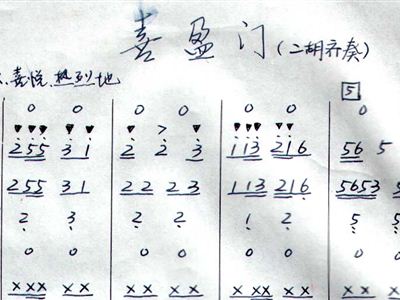 喜盈门(二胡齐奏)
、喜悦、热烈地
5
0 0 0 0 0 0 0
▼▼▼ ▼ ▼ ▼ > ▼ ▼▼▼ ▼▼
255 31 2 2 3 113 216 56 5
255 31 22 23 113 216 5653 5
2 3 2 2 1 2 5 5
0 0 0 0 0 0 0 0
XXX XX X X X X X XX XXX X X